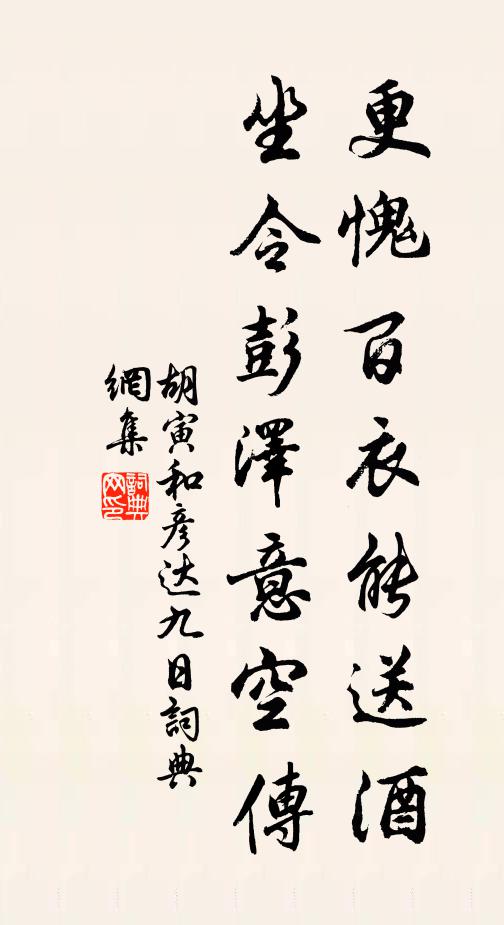 更愧百衣能送酒
坐令彭澤意空傳
胡寅和彦达九日詞典
網集
詞典
网印